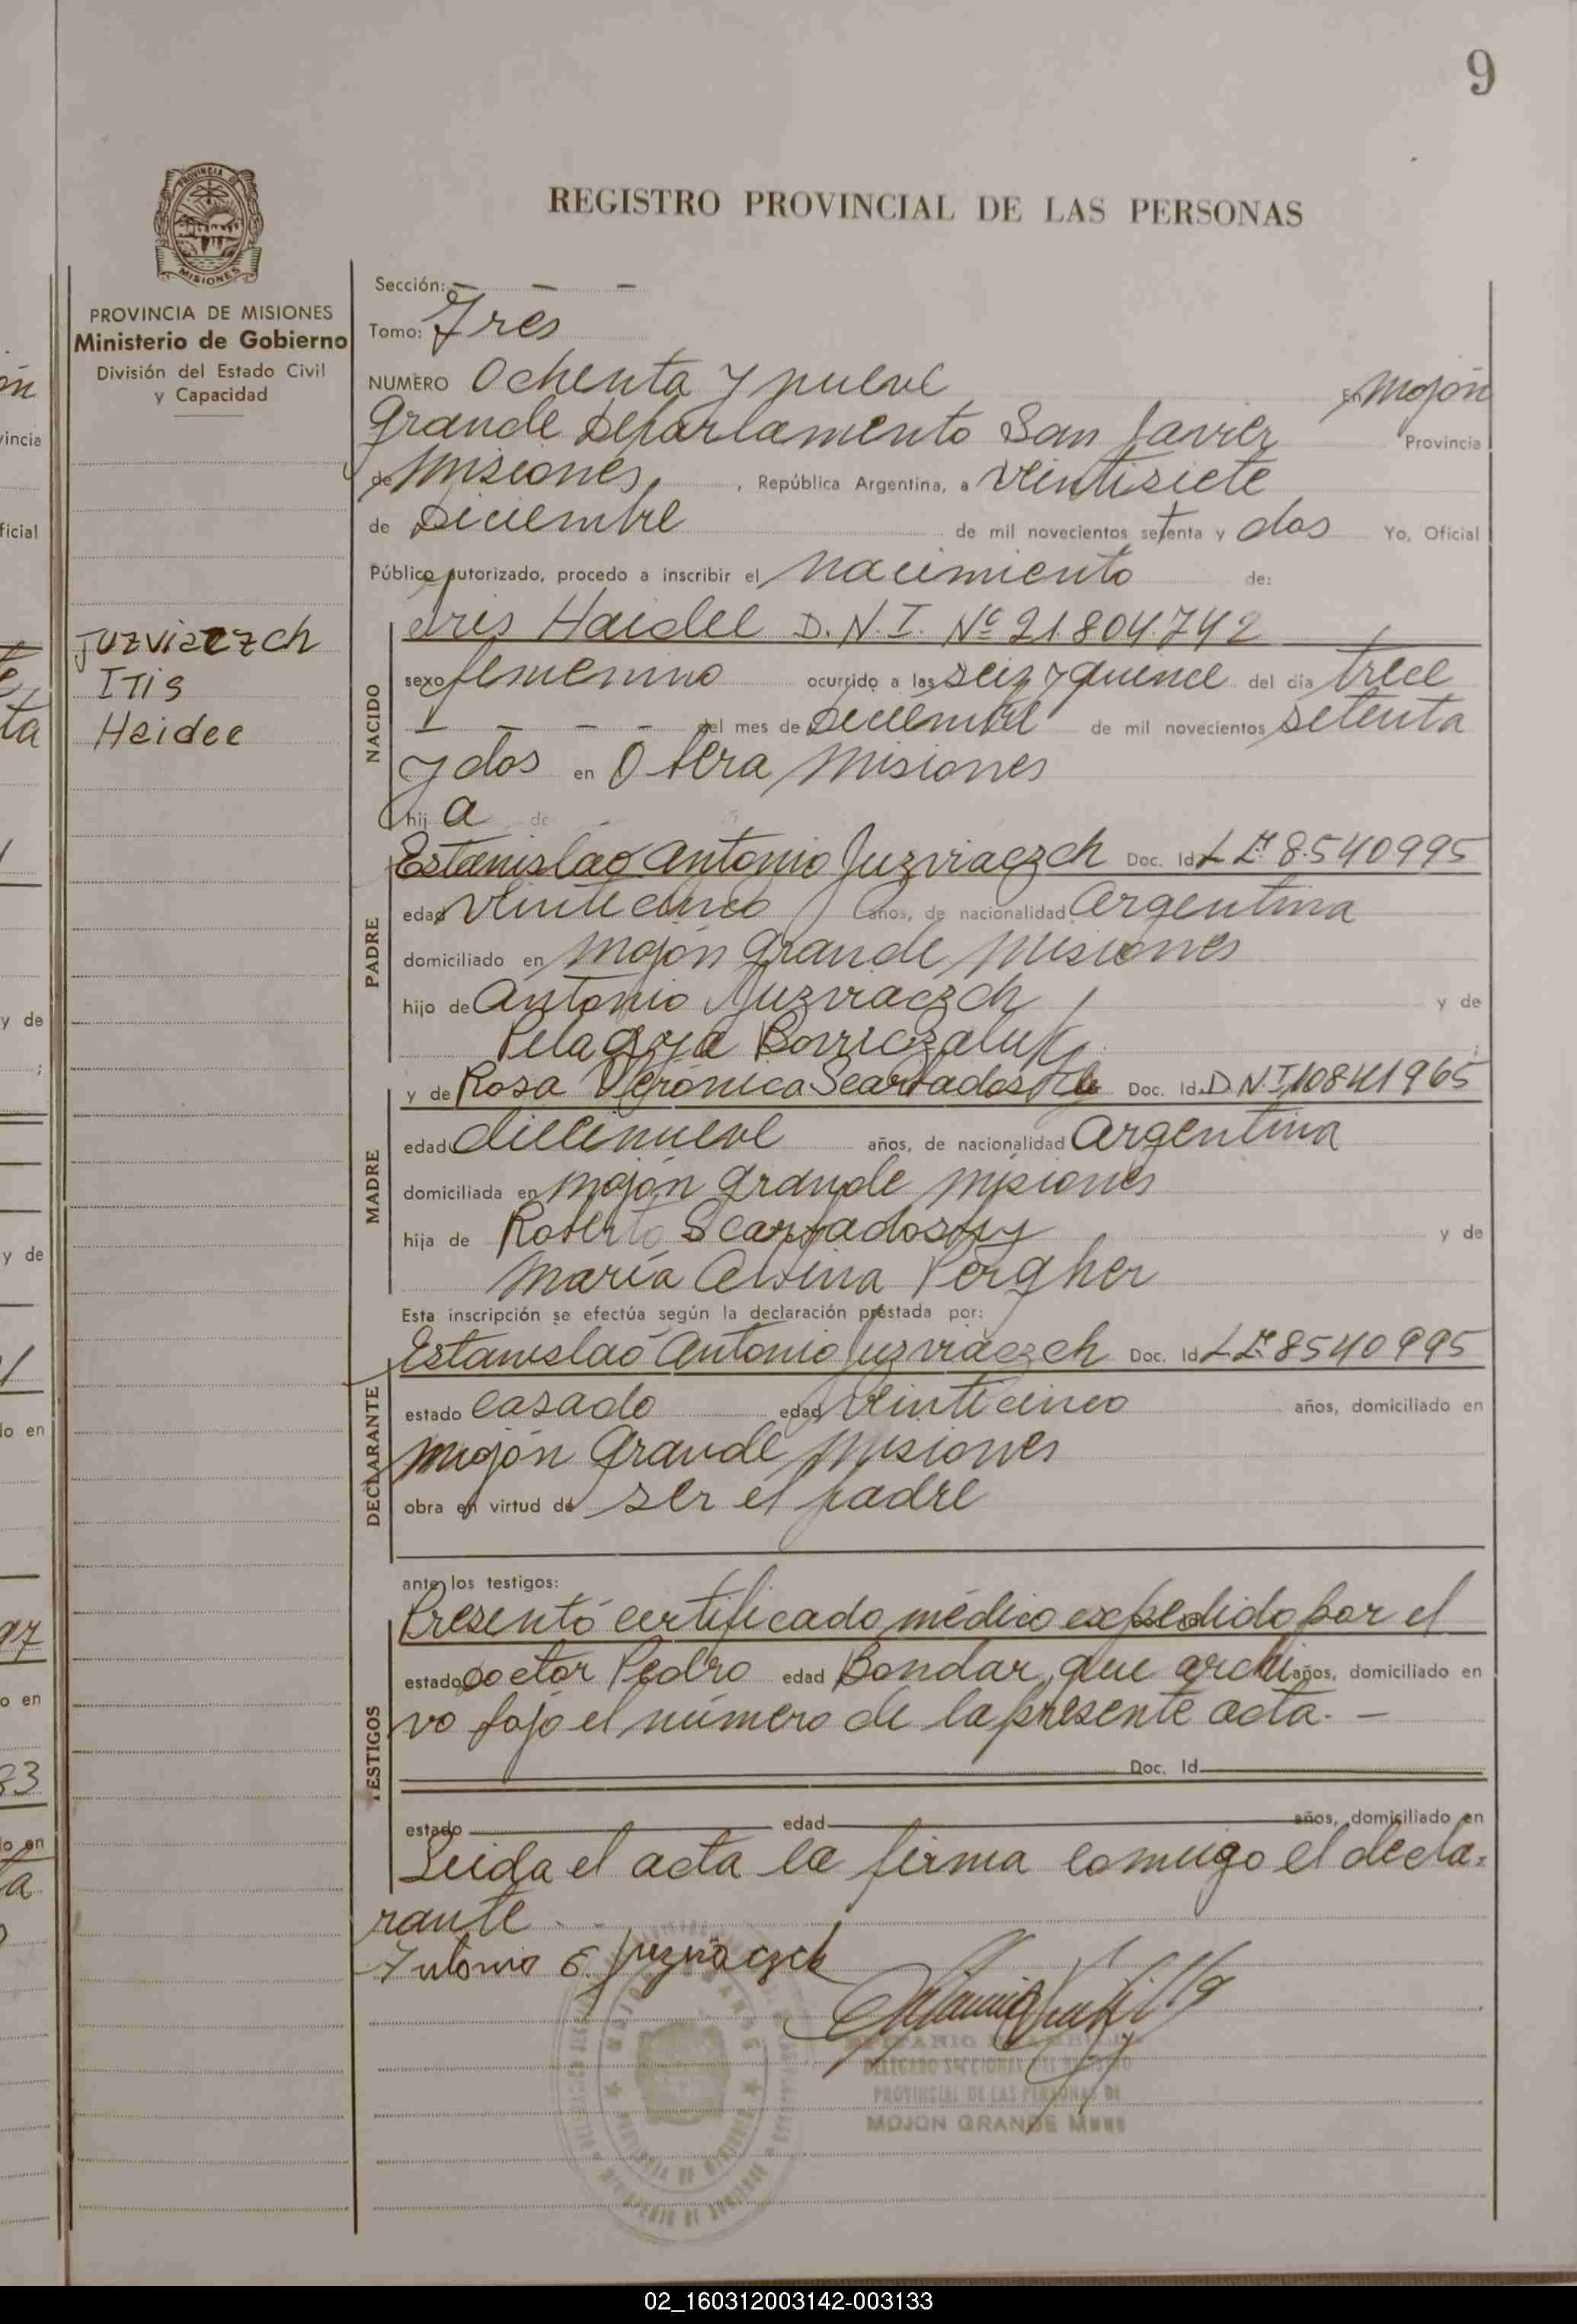 9
REGISTRO PROVINCIAL DE LAS PERSONAS
PROVINCIA DE
MISIONES
PROVINCIA DE MISIONES
Ministerio de Gobierno
División del Estado Civil
y Capacidad
Juzviaczch
Iris
Haidee
Sección: - - -
Tomo: Tres
NUMERO Ochenta y nueve En Mojón
Grande Departamento San Javier Provincia
de Misiones, República Argentina, a veintisiete
de Diciembre de mil novecientos setenta y dos Yo, Oficial
Público autorizado, procedo a inscribir el nacimiento de:
NACIDO
Iris Haidee D.N.I. Nº 21.804.742
sexo femenino ocurrido a las seis y quince del día trece
- - - - del mes de Diciembre de mil novecientos setenta
y dos en Oberá Misiones
hij a de
PADRE
Estanislao Antonio Juzviaczch Doc. Id L.E. 8.540995
edad veinticinco años, de nacionalidad Argentina
domiciliado en Mojón Grande Misiones
hijo de Antonio Juzviaczch y de
Pelagya
MADRE
y de Rosa Verónica Doc. Id. D.N.I 10841965
edad diecinueve años, de nacionalidad Argentina
domiciliada en Mojón Grande Misiones
hija de Roberto y de
María Pergher
Esta inscripción se efectúa según la declaración prestada por:
DECLARANTE
Estanislao Antonio Juzviaczch Doc. Id L.E. 8540995
estado casado edad veinticinco años, domiciliado en
Mojón Grande Misiones
obra en virtud de ser el padre
ante los testigos:
TESTIGOS
Presentó certificado médico expedido por el
estado doctor Pedro edad Bondar, que archi años, domiciliado en
vo bajo el número de la presente acta. -
Doc. Id.
estado edad años, domiciliado en
Leida el acta la firma conmigo el decla-
rante
Antonio E. Juzviaczch
DELEGADO SECCIONAL DEL REGISTRO
PROVINCIAL DE LAS PERSONAS DE
MOJON GRANDE Mnes
02_160312003142-003133